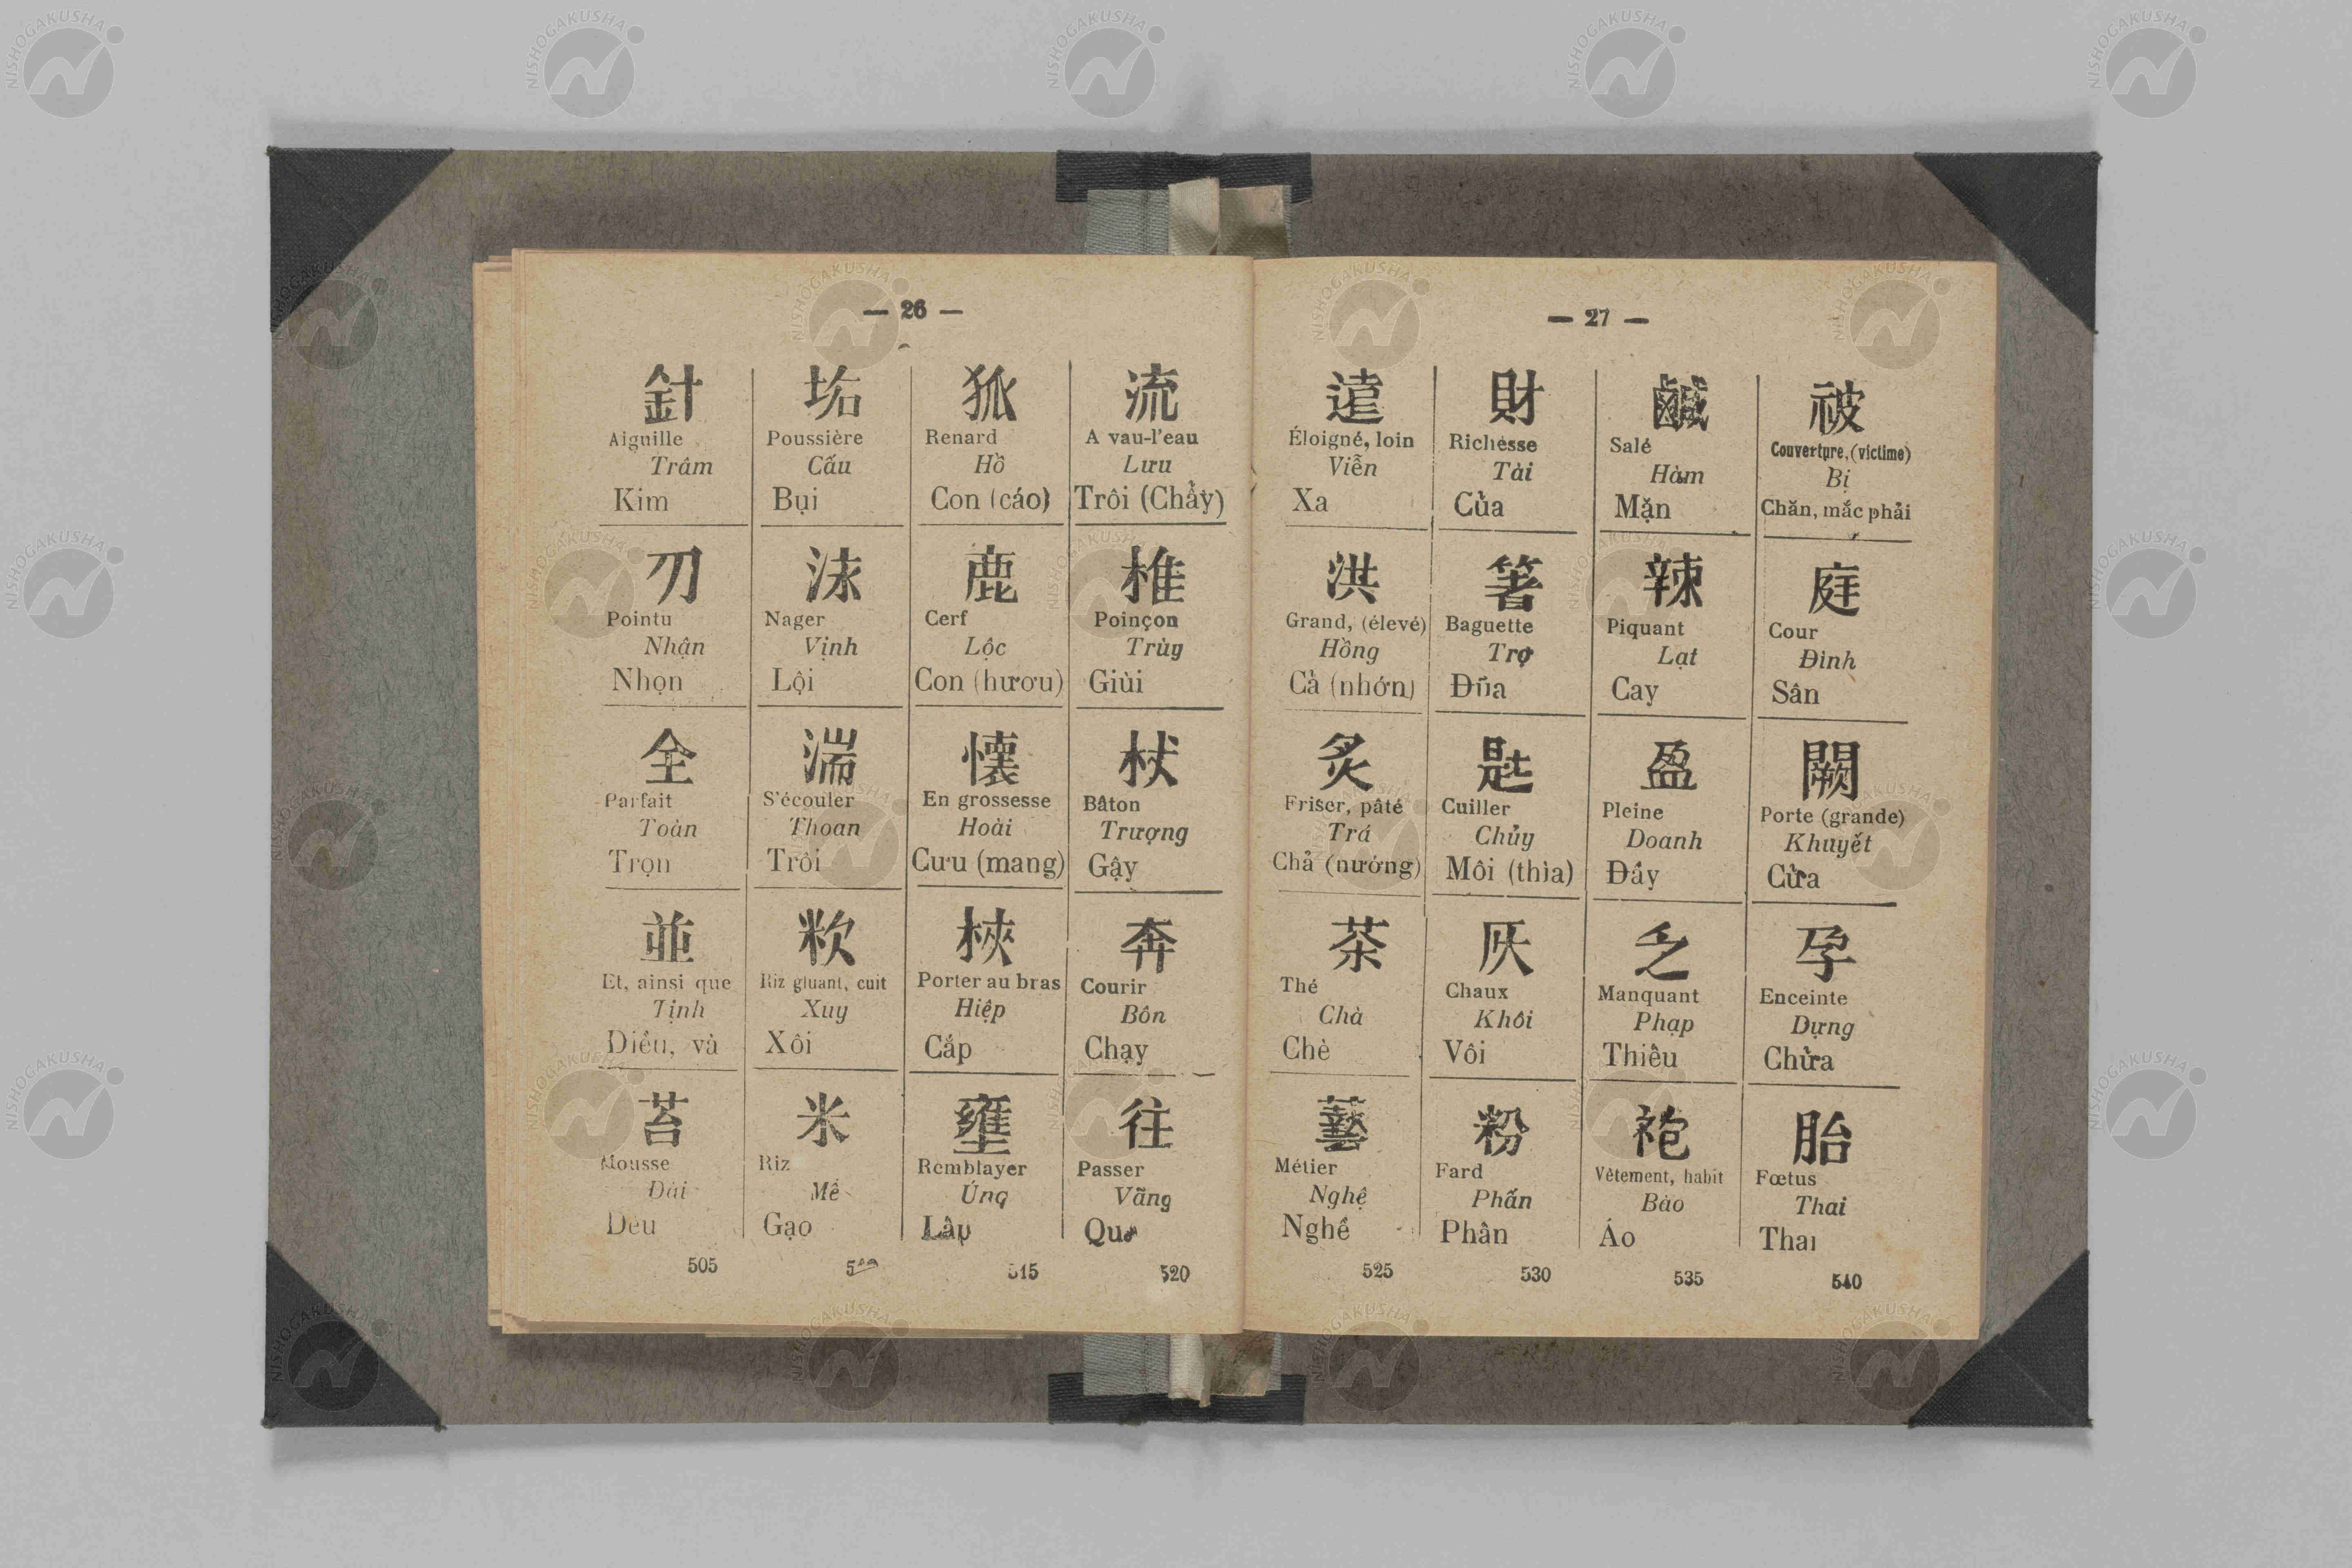 — 26 —
針
Aiguille
Trâm
Kim
刀
Pointu
Nhận
Nhọn
全
Parfait
Toàn
Trọn
並
Et, ainsi que
Tịnh
Điều, và
苔
Mousse
Đài
Deu
505
垢
Poussière
Cấu
Bụi
泳
Nager
Vịnh
Lội
湍
S'écouler
Thoan
Trôi
Riz gluant, cuit
Xuy
Xôi
米
Riz
Mễ
Gạo
狐
Renard
Hồ
Con (cáo)
鹿
Cerf
Lộc
Con (hươu)
懷
En grossesse
Hoài
Cưu (mang)
梜
Porter au bras
Hiệp
Cắp
壅
Remblayer
Úng
Lâp
515
流
A vau-l'eau
Lưu
Trôi (Chẩy)
椎
Poinçon
Trùy
Giùi
杖
Bâton
Trượng
Gậy
奔
Courir
Bôn
Chạy
往
Passer
Vãng
520
— 27 —
遠
Éloigné, loin
Viễn
Xa
洪
Grand, (élevé)
Hồng
Cả (nhớn)
炙
Friser, pâté
Trá
Chả (nướng)
茶
Thé
Chà
Chè
藝
Métier
Nghệ
Nghề
525
財
Richesse
Tài
Của
箸
Baguette
Trợ
Đũa
匙
Cuiller
Chủy
Môi (thìa)
灰
Chaux
Khôi
Vôi
粉
Fard
Phấn
Phân
530
鹹
Salé
Hàm
Mặn
辣
Piquant
Lạt
Cay
盈
Pleine
Doanh
Đầy
乏
Manquant
Phạp
Thiêu
袍
Vêtement, habit
Bào
Áo
535
被
Couverture, (victime)
Bị
Chăn, mắc phải
庭
Cour
Đình
Sân
闕
Porte (grande)
Khuyết
Cửa
孕
Enceinte
Dựng
Chửa
胎
Fœtus
Thai
Thai
540